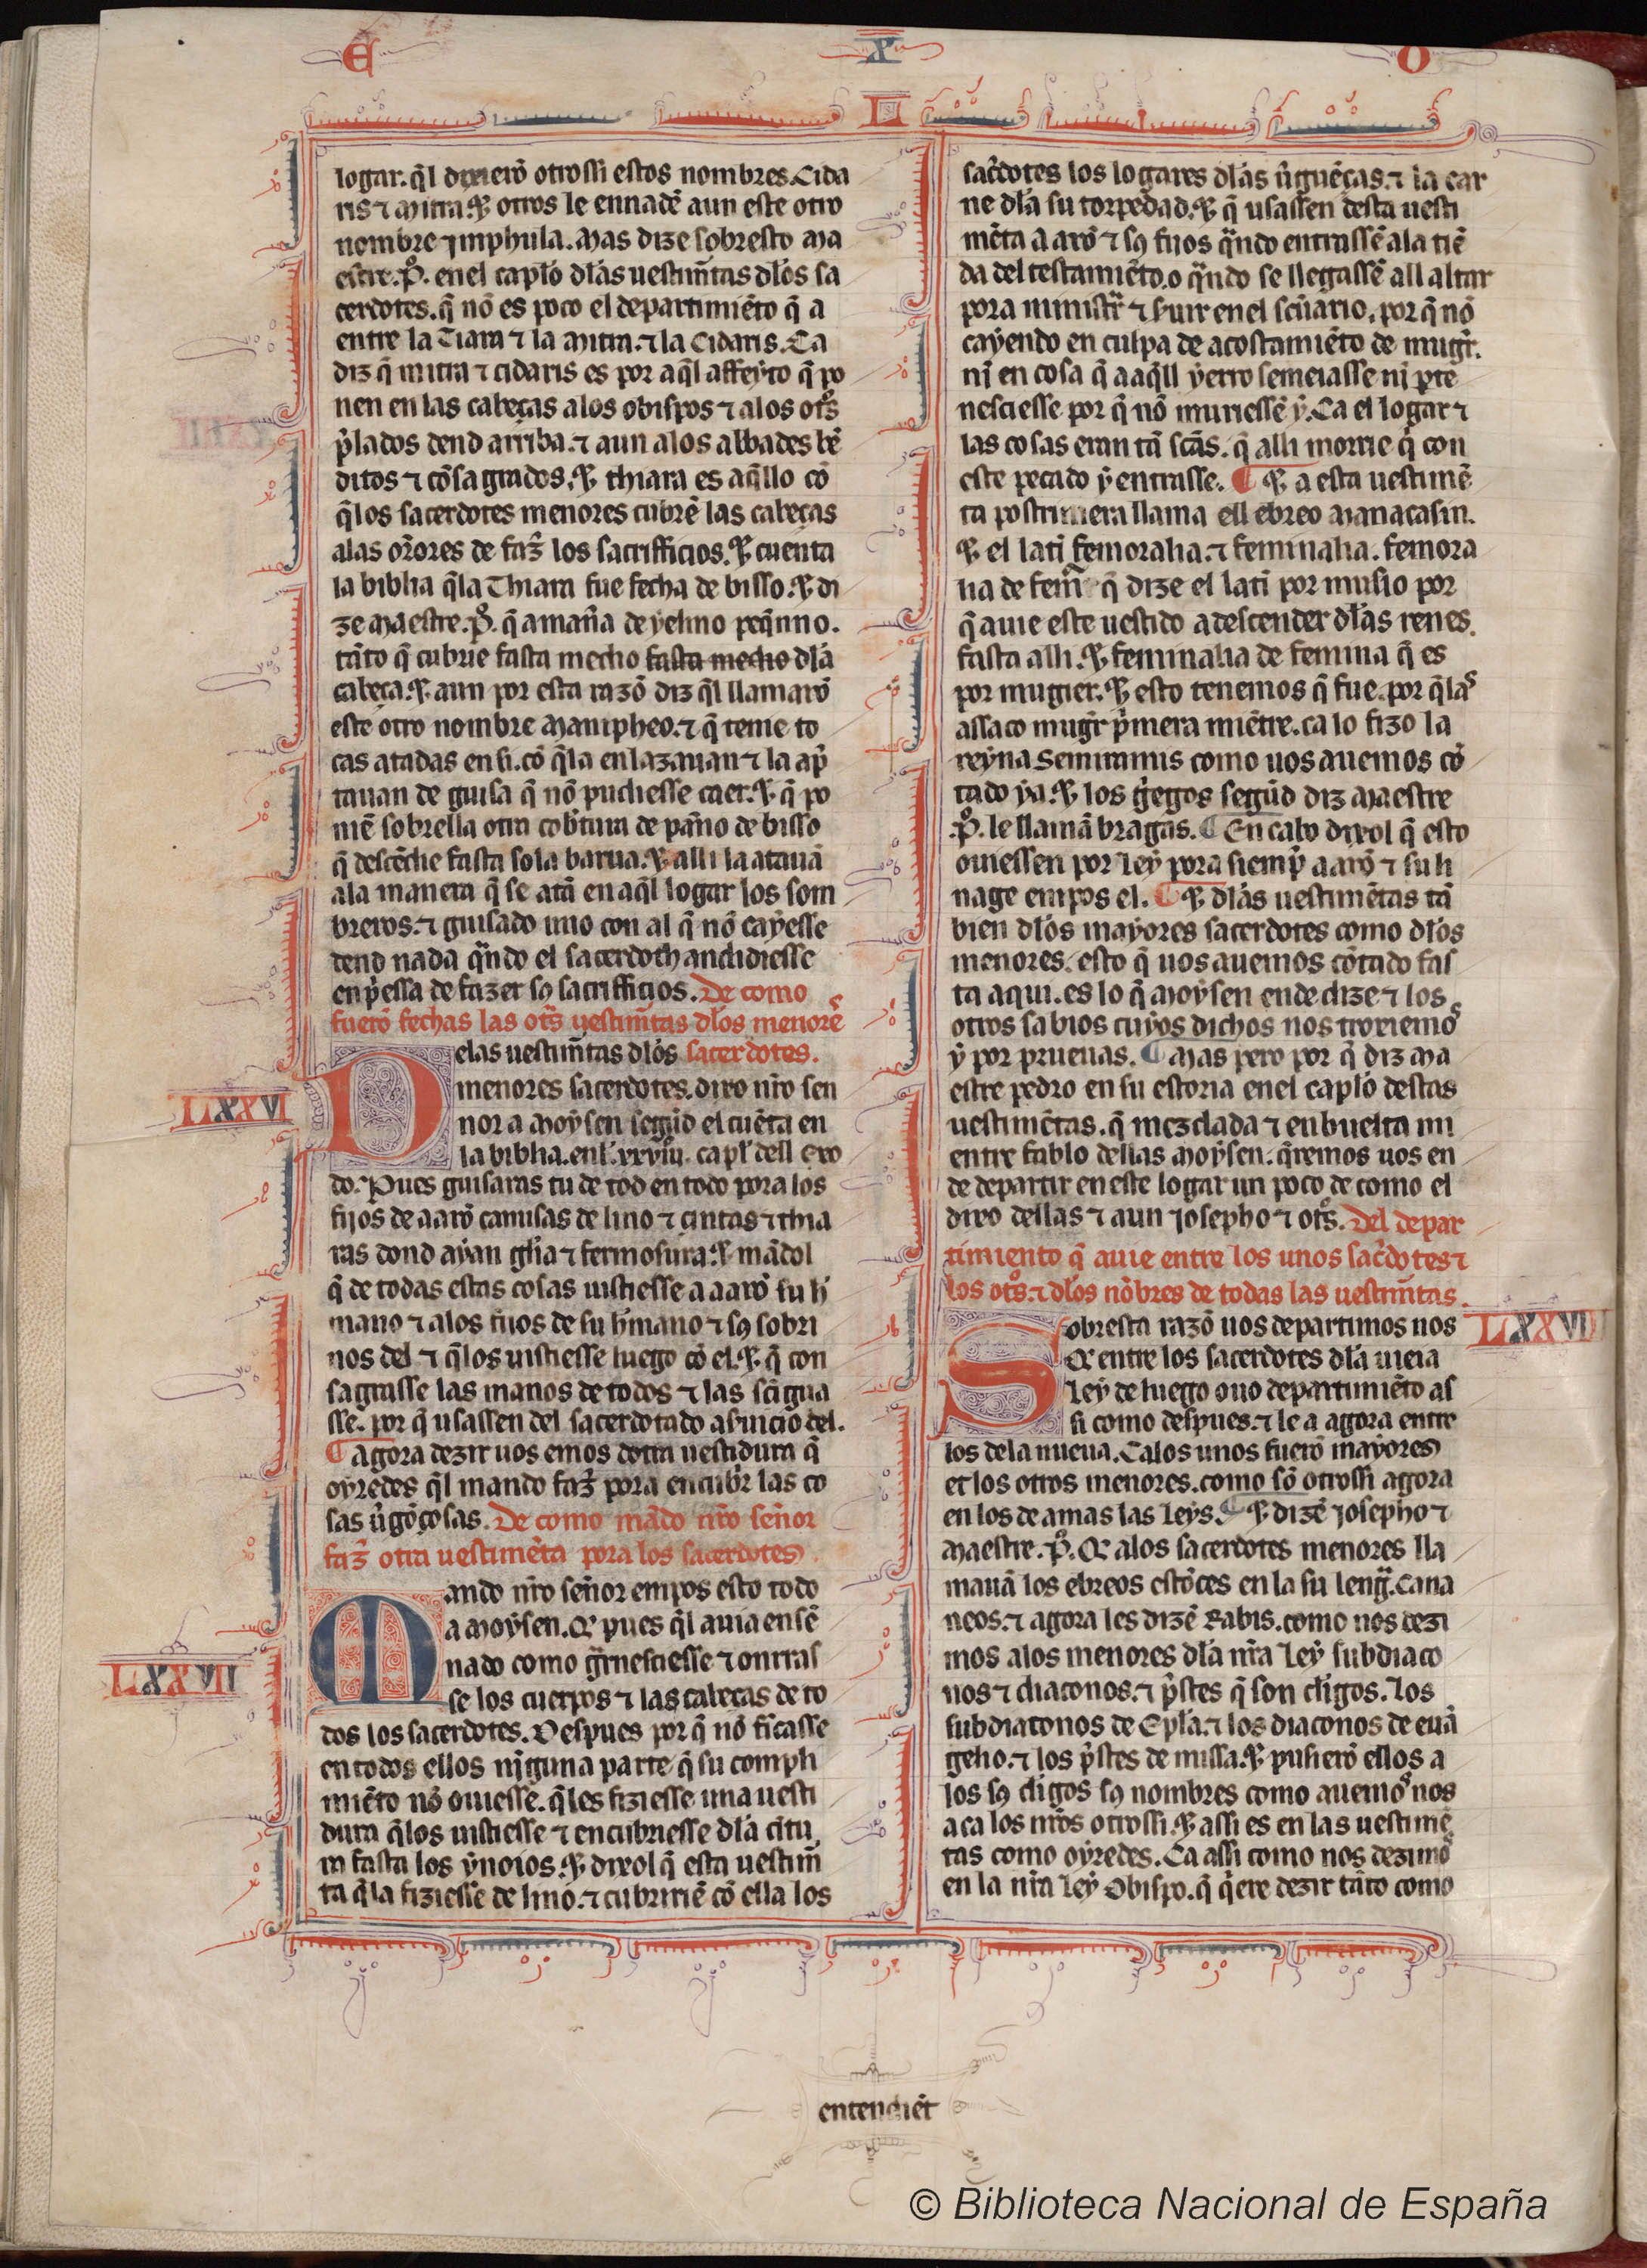 E X O
L
logar. q̃l dixierõ otrossi estos nombres. Cida
ris ⁊ Mitra. ⁊ otros le ennadẽ aun este otro
nombre ymphula. Mas dize sobresto Ma
estre. P̊. en el capłõ dłas uestim̃tas dłos sa
cerdotes. q̃ nõ es poco el departimiẽto q̃ a
entre la Tiara ⁊ la Mitra. ⁊ la Cidaris. Ca
diz q̃ mitra ⁊ cidaris es por aq̃l affeyto q̃ po
nen en las cabeças alos obispos ⁊ alos ot̃s
p̃lados dend arriba. ⁊ aun alos abbades bẽ
ditos ⁊ cõsagrados. ⁊ thiara es aq̃llo cõ
q̃los sacerdotes menores cubrẽ las cabeças
alas or̃ores de faz̃ los sacrifficios. ⁊ cuenta
la biblia q̃la Thiara fue fecha de bisso. ⁊ di
ze Maestre. P̊. q̃ amañа de yelmo peq̃nno.
tãto q̃ cubrie fasta medio fasta medio dła
cabeça. ⁊ aun por esta razõ diz q̃l llamarõ
este otro nombre Manipheo. ⁊ q̃ tenie to
cas atadas en si. cõ q̃la enlazauan ⁊ la ap̃
tauan de guisa q̃ nõ pudiesse caer. ⁊ q̃ po
niẽ sobrella otra cob̃tura de paño de bisso
q̃ descẽdie fasta sola barua. ⁊ alli la atauã
ala manera q̃ se atã en aq̃l logar los som
breros. ⁊ guisado uno con al q̃ nõ cayesse
dend nada q̃ndo el sacerdoth andidiesse
en p̃essa de fazer sꝯ sacrifficios. De como
fuerõ fechas las ot̃s uestim̃tas dłos menorẽs
elas uestim̃tas dłos sacerdotes.
LXXVI
menores sacerdotes. dixo nr̃o sen
nor a Moysen segũd el cuẽta en
la biblia. en l. xxviii. capł. dell Exo
do. Pues guisaras tu de tod en todo pora los
fijos de aarõ camisas de lino ⁊ cintas ⁊ thia
ras dond ayan gl̃ia ⁊ fermosura. ⁊ mãdol
q̃ de todas estas cosas uistiesse a aarõ su h̃
mano ⁊ alos fijos de su h̃mano ⁊ sꝯ sobri
nos del ⁊ q̃los uistiesse luego cõ el. ⁊ q̃ con
sagrasse las manos de todos ⁊ las sc̃igua
sse. por q̃ usassen del sacerdotado a s̃uicio del.
¶ agora dezir uos emos dotra uestidura q̃
oyredes q̃l mando faz̃ pora encubr̃ las co
sas ũgõçosas. De como mãdo nr̃o señor
faz̃ otra uestimẽta pora los sacerdotes
Mando nr̃o señor empos esto todo
a Moysen. Et pues q̃l auia ensẽ
nado como g̃rnesciesse ⁊ onrras
LXXVII
se los cuerpos ⁊ las cabeças de to
dos los sacerdotes. Despues por q̃ nõ fincasse
en todos ellos niguna parte q̃ su compli
miẽto nõ ouiesse. q̃les fiziesse una uesti
dura q̃los uistiesse ⁊ encubriesse dła citu
ra fasta los ynoios. ⁊ dixol q̃ esta uestim̃
ta q̃la fiziesse de lino. ⁊ cubririẽ cõ ella los
sac̃dotes los logares dłas ũguẽças. ⁊ la car
ne dła su torpedad. ⁊ q̃ usassen desta uesti
mẽta a arõ ⁊ sꝯ fijos q̃ndo entrassẽ ala tiẽ
da del testamiẽto. o q̃ndo se llegassẽ all altar
pora ministr̃ ⁊ s̃uir en el sc̃uario. por q̃ nõ
cayendo en culpa de acostamiẽto de mug̃r.
ni en cosa q̃ a aq̃ll yerro semeiasse ni p̃te
nesciesse por q̃ nõ muriessẽ y. Ca el logar ⁊
las cosas eran tã sc̃as. q̃ alli morrie q̃ con
este pecado y entrasse. ¶ ⁊ a esta uestimẽ
ta postrimera llama ell ebreo Manacasin.
⁊ el lati femoralia. ⁊ feminalia. femora
lia de fem̃ q̃ dize el lati por muslo por
q̃ auie este uestido a descender dłas renes
fasta alli. ⁊ feminalia de femina q̃ es
por mugier. ⁊ esto tenemos q̃ fue. por q̃las
assaco mug̃r p̃mera miẽtre. ca lo fizo la
reyna Semiramis como uos auemos cõ
tado ya. ⁊ los g̃egos segũd diz Maestre
P̊. le llamã bragas. ¶ En cabo dixol q̃ esto
ouiessen por Ley pora siemp̃ aarõ ⁊ su li
nage empos el. ¶ ⁊ dłas uestimẽtas tã
bien dłos mayores sacerdotes como dłos
menores. esto q̃ uos auemos cõtado fas
ta aqui. es lo q̃ Moysen ende dize ⁊ los
otros sabios cuyos dichos nos troxiemos
y por prueuas. ¶ Mas pero por q̃ diz Ma
estre pedro en su estoria en el capłõ destas
uestimẽtas. q̃ mezclada ⁊ enbuelta mi
entre fablo dellas Moysen. q̃remos uos en
de departir en este logar un poco de como el
dixo dellas ⁊ aun Josepho ⁊ ot̃s. Del depar
timiento q̃ auie entre los unos sac̃dotes ⁊
los ot̃s. ⁊ dłos nõbres de todas las uestim̃tas.
Sobresta razõ uos departimos nos
LXXVIII
Et entre los sacerdotes dła uieia
Ley de luego ouo departimiẽto as
si como despues. ⁊ le a agora entre
los dela nueua. Ca los unos fuerõ mayores
et los otros menores. como sõ otrossi agora
en los de amas las Leys. ¶ ⁊ dizẽ Josepho ⁊
Maestre. P̊. Et alos sacerdotes menores lla
mauã los ebreos estõces en la su leng̃. Cana
neos. ⁊ agora les dizẽ Rabis. como nos dezi
mos alos menores dła nr̃a Ley subdiaco
nos ⁊ diaconos. ⁊ p̃stes q̃ son cl̃igos. Los
subdiaconos de Epł̃a. ⁊ los diaconos de euã
gelio. ⁊ los p̃stes de missa. ⁊ pusierõ ellos a
los sꝯ cl̃igos sꝯ nombres como auemos nos
aca los nr̃os otrossi. ⁊ assi es en las uestimẽ
tas como oyredes. Ca assi como nos dezimos
en la nr̃a Ley Obispo. q̃ q̃ere dezir tãto como
entendiẽt
© Biblioteca Nacional de España